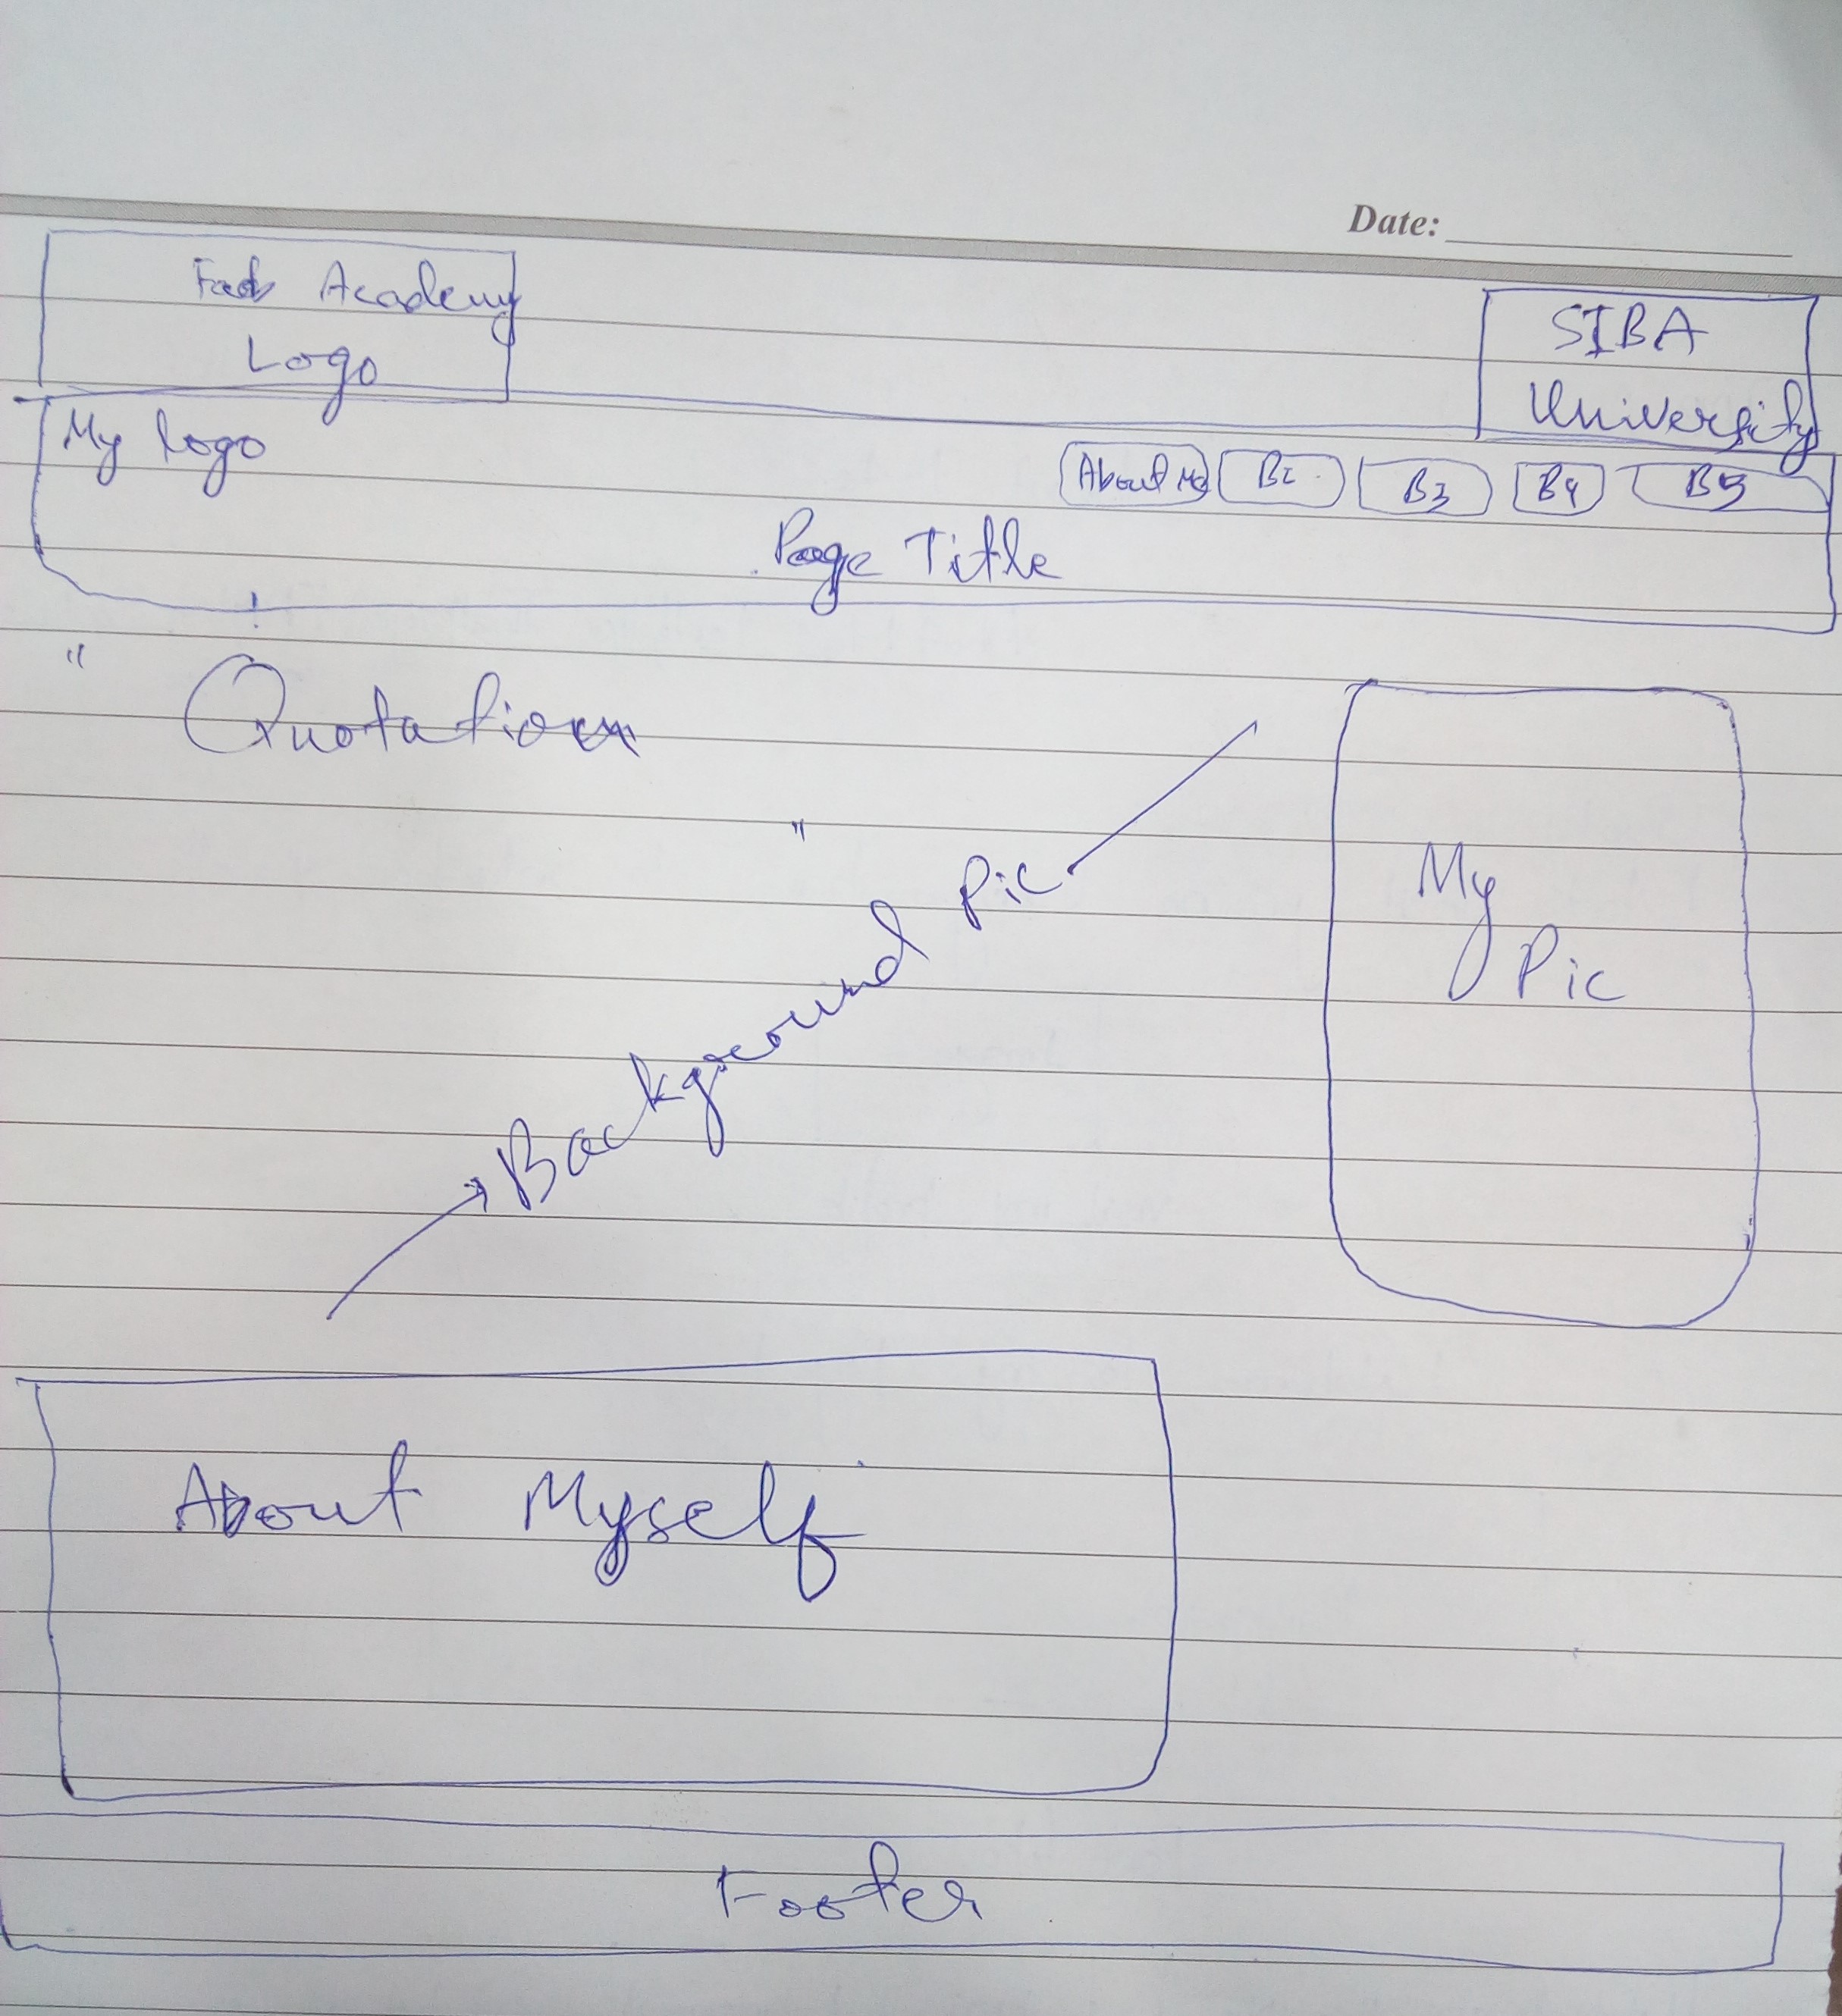 Date:
Academy
Logo
SIBA
University
My logo
About Me B2 B3 B4 B5
Page Title
"
Quotation
"
Background Pic
My
Pic
About Myself
Footer